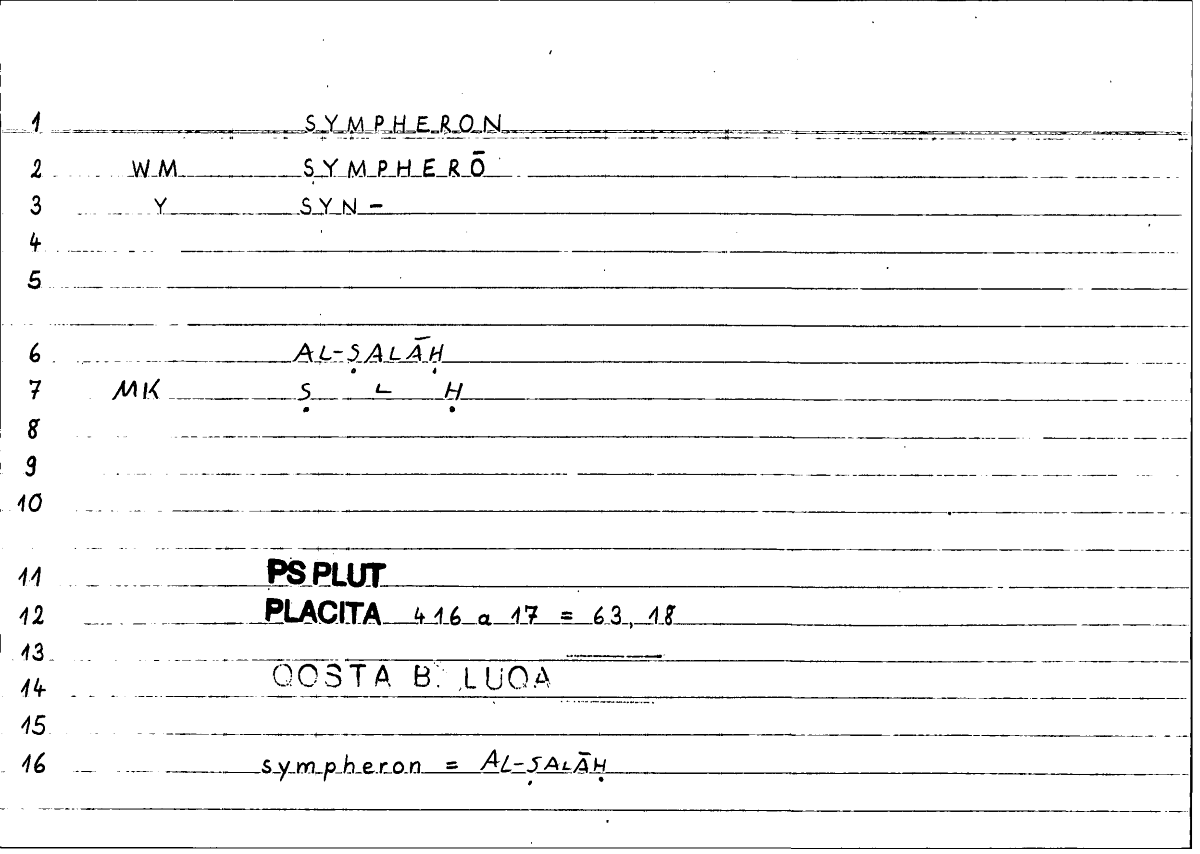 1 SYMPHERON
2 WM SYMPHERŌ
3 Y SYN-
4
5
6 AL-ṢALĀḤ
7 MK Ṣ L Ḥ
8
9
10
11 PS PLUT
12 PLACITA 416 a 17 = 63, 18
13
14 QOSTA B. LUQA
15
16 sympheron = AL-ṢALĀḤ